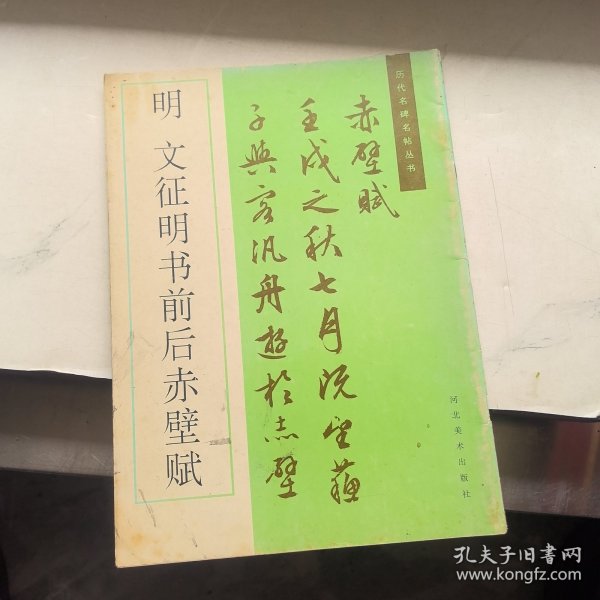 历代名碑名帖丛书
赤壁赋
壬戌之秋七月既望苏
子与客汎舟游於赤壁
明 文征明书前后赤壁赋
河北美术出版社
孔夫子旧书网
www.kongfz.com